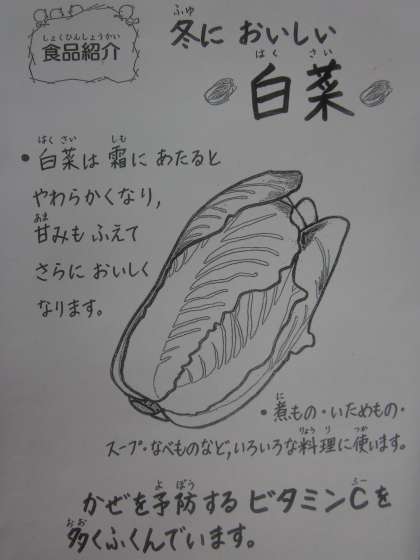 しょくひんしょうかい
食品紹介
ふゆ
冬に おいしい
はく さい
白菜
はく さい しも
• 白菜は 霜に あたると
やわらかくなり,
あま
甘みも ふえて
さらに おいしく
なります。
に
• 煮もの・いためもの・
りょう り つか
スープ・なべものなど,いろいろな料理に使います。
よ ぼう シー
かぜを予防する ビタミンCを
おお
多くふくんでいます。